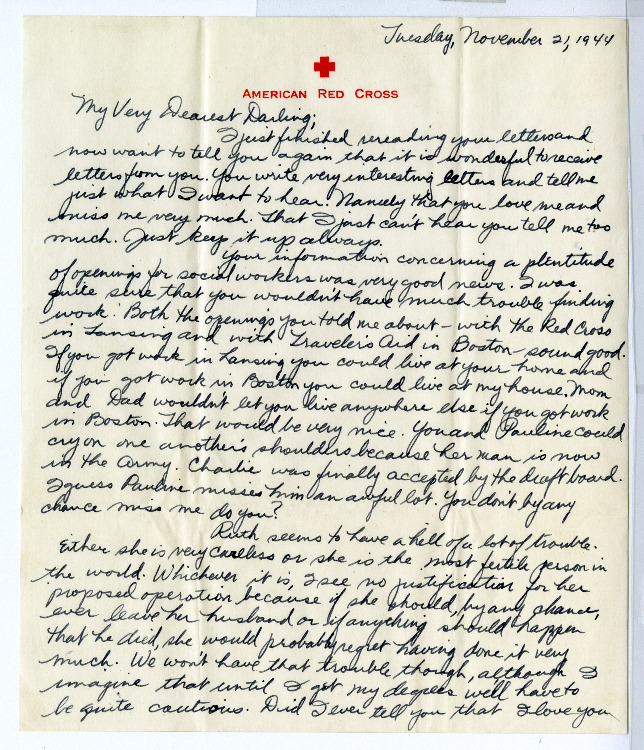 Tuesday, November 21, 1944
AMERICAN RED CROSS
My Very Dearest Darling;
I just finished rereading your letters and
now want to tell you again that it is wonderful to receive
letters from you. You write very interesting letters and tell me
just what I want to hear. Namely that you love me and
miss me very much. That I just can't hear you tell me too
much. Just keep it up always.
Your information concerning a plentitude
of openings for social workers was very good news. I was
quite sure that you wouldn't have much trouble finding
work. Both the openings you told me about - with the Red Cross
in Lansing and with Traveler's Aid in Boston - sound good.
If you got work in Lansing you could live at your home and
if you got work in Boston you could live at my house. Mom
and Dad wouldn't let you live anywhere else if you got work
in Boston. That would be very nice. You and Pauline could
cry on one another's shoulders because her man is now
in the Army. Charlie was finally accepted by the draft board.
I guess Pauline misses him an awful lot. You don't by any
chance miss me do you?
Ruth seems to have a hell of a lot of trouble.
Either she is very careless or she is the most fertile person in
the world. Whichever it is, I see no justification for her
proposed operation because if she should, by any chance,
ever leave her husband or if anything should happen
that he died, she would probably regret having done it very
much. We won't have that trouble though, although I
imagine that until I get my degrees we'll have to
be quite cautious. Did I ever tell you that I love you